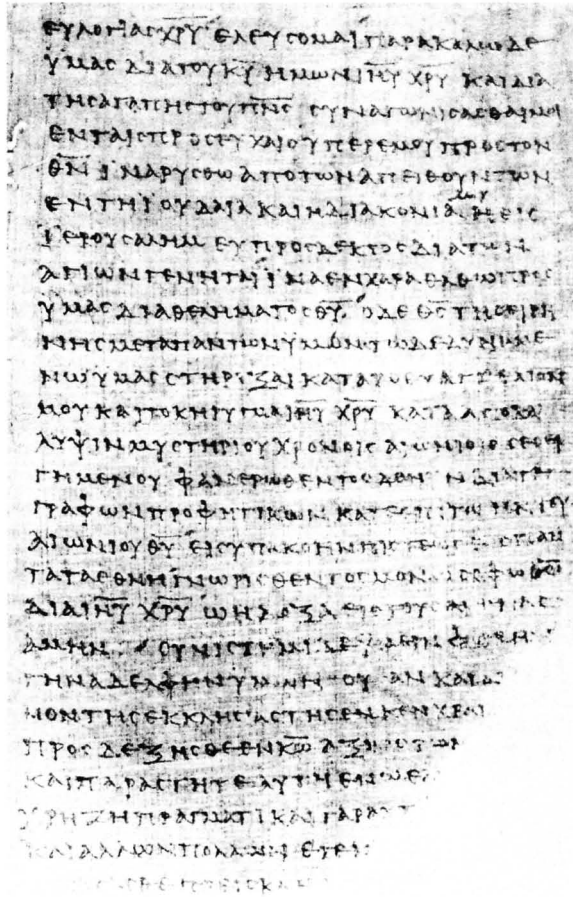 ΕΥΛΟΓΙΑϹ Χ̅Ρ̅Υ̅ ΕΛΕΥϹΟΜΑΙ ΠΑΡΑΚΑΛΩ ΔΕ
ΥΜΑϹ ΔΙΑ ΤΟΥ Κ̅Υ̅ ΗΜΩΝ Ι̅Η̅Υ̅ Χ̅Ρ̅Υ̅ ΚΑΙ ΔΙΑ
ΤΗϹ ΑΓΑΠΗϹ ΤΟΥ Π̅Ν̅Ϲ̅ ϹΥΝΑΓΩΝΙϹΑϹΘΑΙ ΜΟΙ
ΕΝ ΤΑΙϹ ΠΡΟϹΕΥΧΑΙϹ ΥΠΕΡ ΕΜΟΥ ΠΡΟϹ ΤΟΝ
Θ̅Ν̅ ΪΝΑ ΡΥϹΘΩ ΑΠΟ ΤΩΝ ΑΠΕΙΘΟΥΝΤΩΝ
ΕΝ ΤΗ ΪΟΥΔΑΙΑ ΚΑΙ Η ΔΙΑΚΟΝΙΑ ΜΟΥ Η ΕΙϹ
ΪΕΡΟΥϹΑΛΗΜ ΕΥΠΡΟϹΔΕΚΤΟϹ ΔΙΑ ΤΩΝ
ΑΓΙΩΝ ΓΕΝΗΤΑΙ ΪΝΑ ΕΝ ΧΑΡΑ ΕΛΘΩ ΠΡΟϹ
ΥΜΑϹ ΔΙΑ ΘΕΛΗΜΑΤΟϹ Θ̅Υ̅ Ο ΔΕ Θ̅Ϲ̅ ΤΗϹ ΕΙΡΗ
ΝΗϹ ΜΕΤΑ ΠΑΝΤΩΝ ΥΜΩΝ ΤΩ ΔΕ ΔΥΝΑΜΕ
ΝΩ ΥΜΑϹ ϹΤΗΡΙΞΑΙ ΚΑΤΑ ΤΟ ΕΥΑΓΓΕΛΙΟΝ
ΜΟΥ ΚΑΙ ΤΟ ΚΗΡΥΓΜΑ Ι̅Η̅Υ̅ Χ̅Ρ̅Υ̅ ΚΑΤΑ ΑΠΟΚΑ
ΛΥΨΙΝ ΜΥϹΤΗΡΙΟΥ ΧΡΟΝΟΙϹ ΑΙΩΝΙΟΙϹ ϹΕϹΕΙ
ΓΗΜΕΝΟΥ ΦΑΝΕΡΩΘΕΝΤΟϹ ΔΕ ΝΥΝ ΔΙΑ ΤΕ
ΓΡΑΦΩΝ ΠΡΟΦΗΤΙΚΩΝ ΚΑΤ ΕΠΙΤΑΓΗΝ ΤΟΥ
ΑΙΩΝΙΟΥ Θ̅Υ̅ ΕΙϹ ΥΠΑΚΟΗΝ ΠΙϹΤΕΩϹ ΕΙϹ ΠΑΝ
ΤΑ ΤΑ ΕΘΝΗ ΓΝΩΡΙϹΘΕΝΤΟϹ ΜΟΝΩ ϹΟΦΩ Θ̅Ω̅
ΔΙΑ Ι̅Η̅Υ̅ Χ̅Ρ̅Υ̅ Ω Η ΔΟΞΑ ΕΙϹ ΤΟΥϹ ΑΙΩΝΑϹ
ΑΜΗΝ ϹΥΝΙϹΤΗΜΙ ΔΕ ΥΜΕΙΝ ΦΟΙΒΗΝ
ΤΗΝ ΑΔΕΛΦΗΝ ΥΜΩΝ ΟΥϹΑΝ ΚΑΙ ΔΙ
ΚΟΝ ΤΗϹ ΕΚΚΛΗϹΙΑϹ ΤΗϹ ΕΝ ΚΕΝΧΡΕΑΙ
ΠΡΟϹΔΕΞΗϹΘΕ ΕΝ Κ̅Ω̅ ΑΞΙΩϹ ΤΩΝ
ΚΑΙ ΠΑΡΑϹΤΗΤΕ ΑΥΤΗ ΕΝ Ω ΕΑ
ΧΡΗΖΗ ΠΡΑΓΜΑΤΙ ΚΑΙ ΓΑΡ ΑΥΤ
ΚΑΙ ΑΛΛΩΝ ΠΟΛΛΩΝ ΕΓΕ